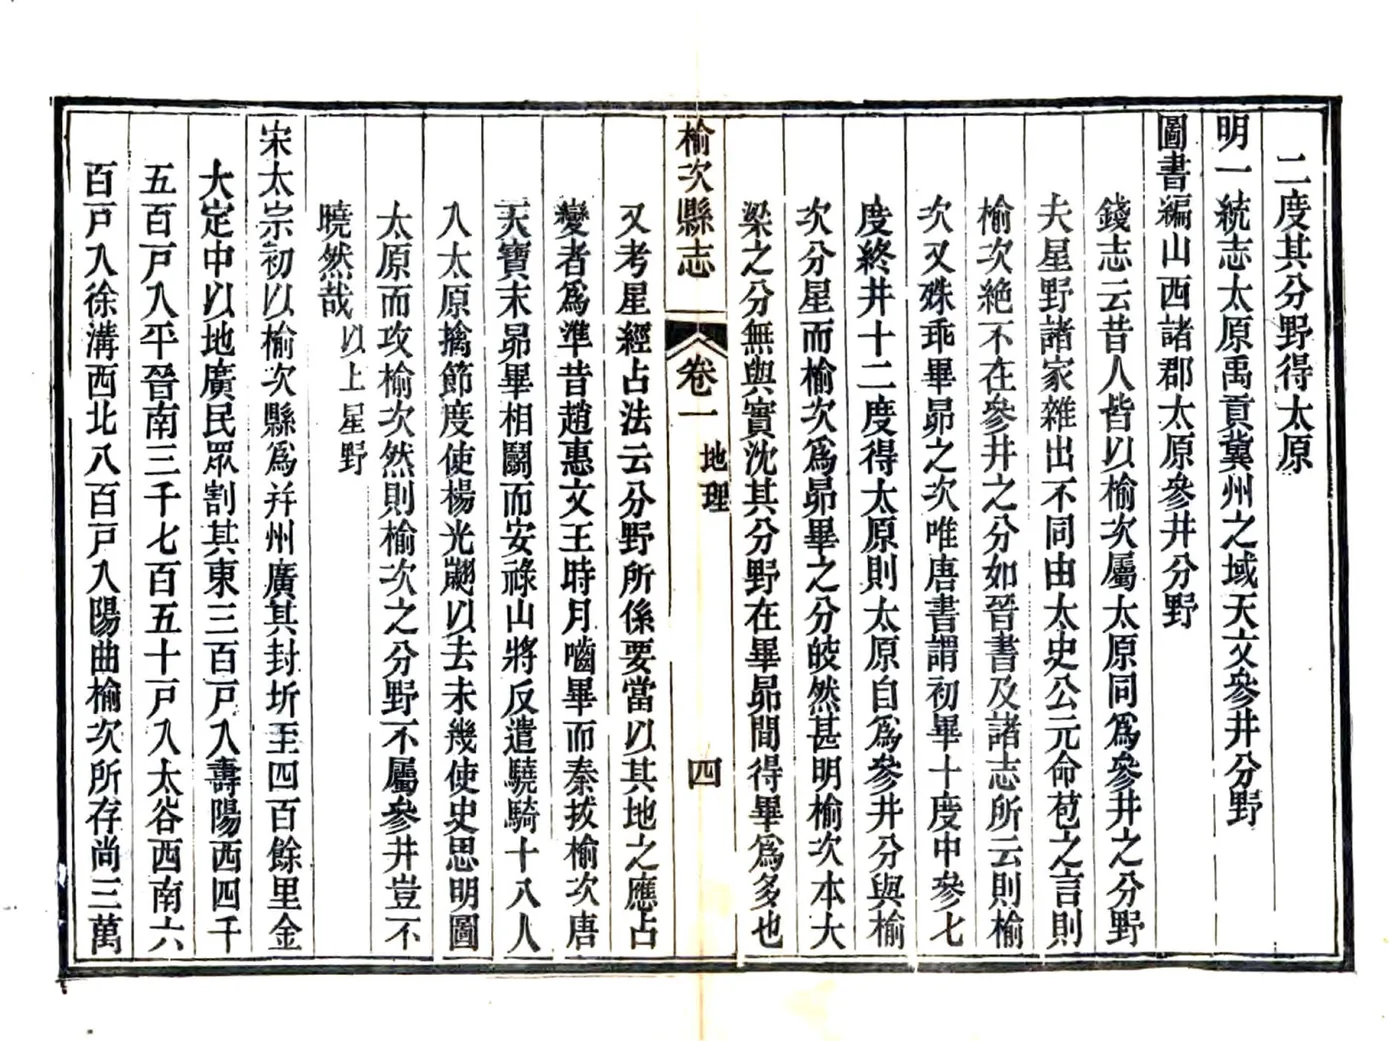 二度其分野得太原
明一統志太原禹貢冀州之域天文參井分野
圖書編山西諸郡太原參井分野
錢志云昔人皆以榆次屬太原同爲參井之分野
夫星野諸家雜出不同由太史公元命苞之言則
榆次絶不在參井之分如晉書及諸志所云則榆
次又殊乖畢昴之次唯唐書謂初畢十度中參七
度終井十二度得太原則太原自爲參井分與榆
次分星而榆次爲昴畢之分皎然甚明榆次本大
梁之分無與實沈其分野在畢昴間得畢爲多也
榆次縣志
卷一
地理
四
又考星經占法云分野所係要當以其地之應占
變者爲準昔趙惠文王時月嚙畢而秦拔榆次唐
天寶末昴畢相鬭而安祿山將反遣驍騎十八人
入太原擒節度使楊光翽以去未幾使史思明圖
太原而攻榆次然則榆次之分野不屬參井豈不
曉然哉以上星野
宋太宗初以榆次縣爲并州廣其封圻至四百餘里金
大定中以地廣民眾割其東三百戸入壽陽西四千
五百戸入平晉南三千七百五十戸入太谷西南六
百戸入徐溝西北八百戸入陽曲榆次所存尚三萬